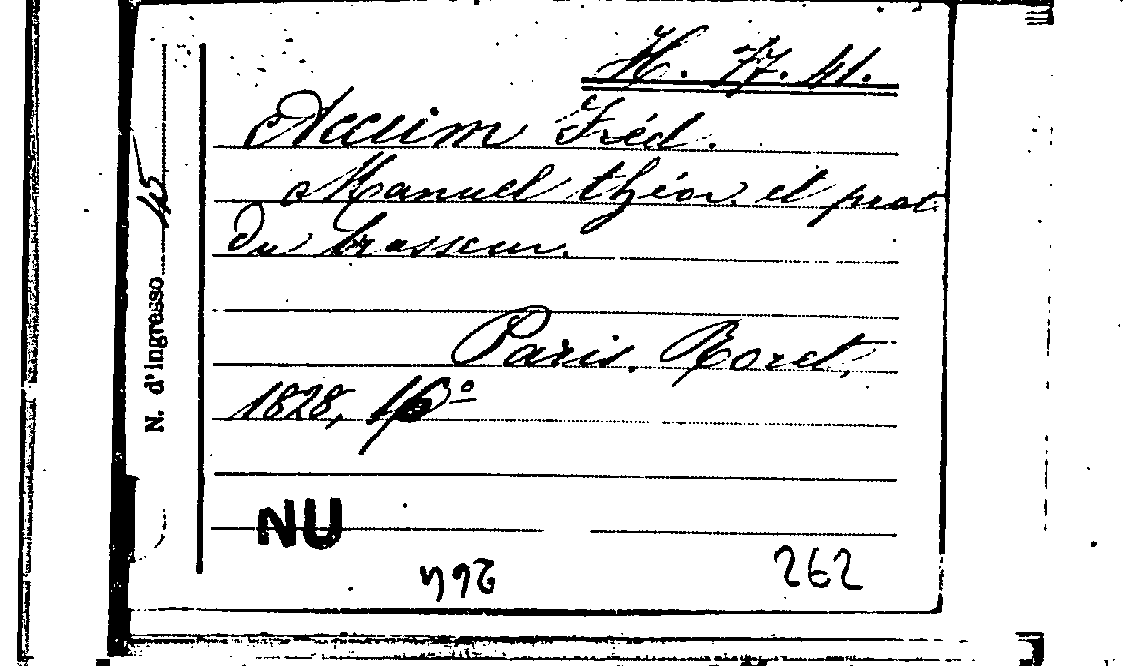 H. 77. 41.
Accum Fréd.
Manuel théor. et prat.
du brasseur.
Paris, Roret,
1828, 16º
N. d'ingresso 45
NU
264
262